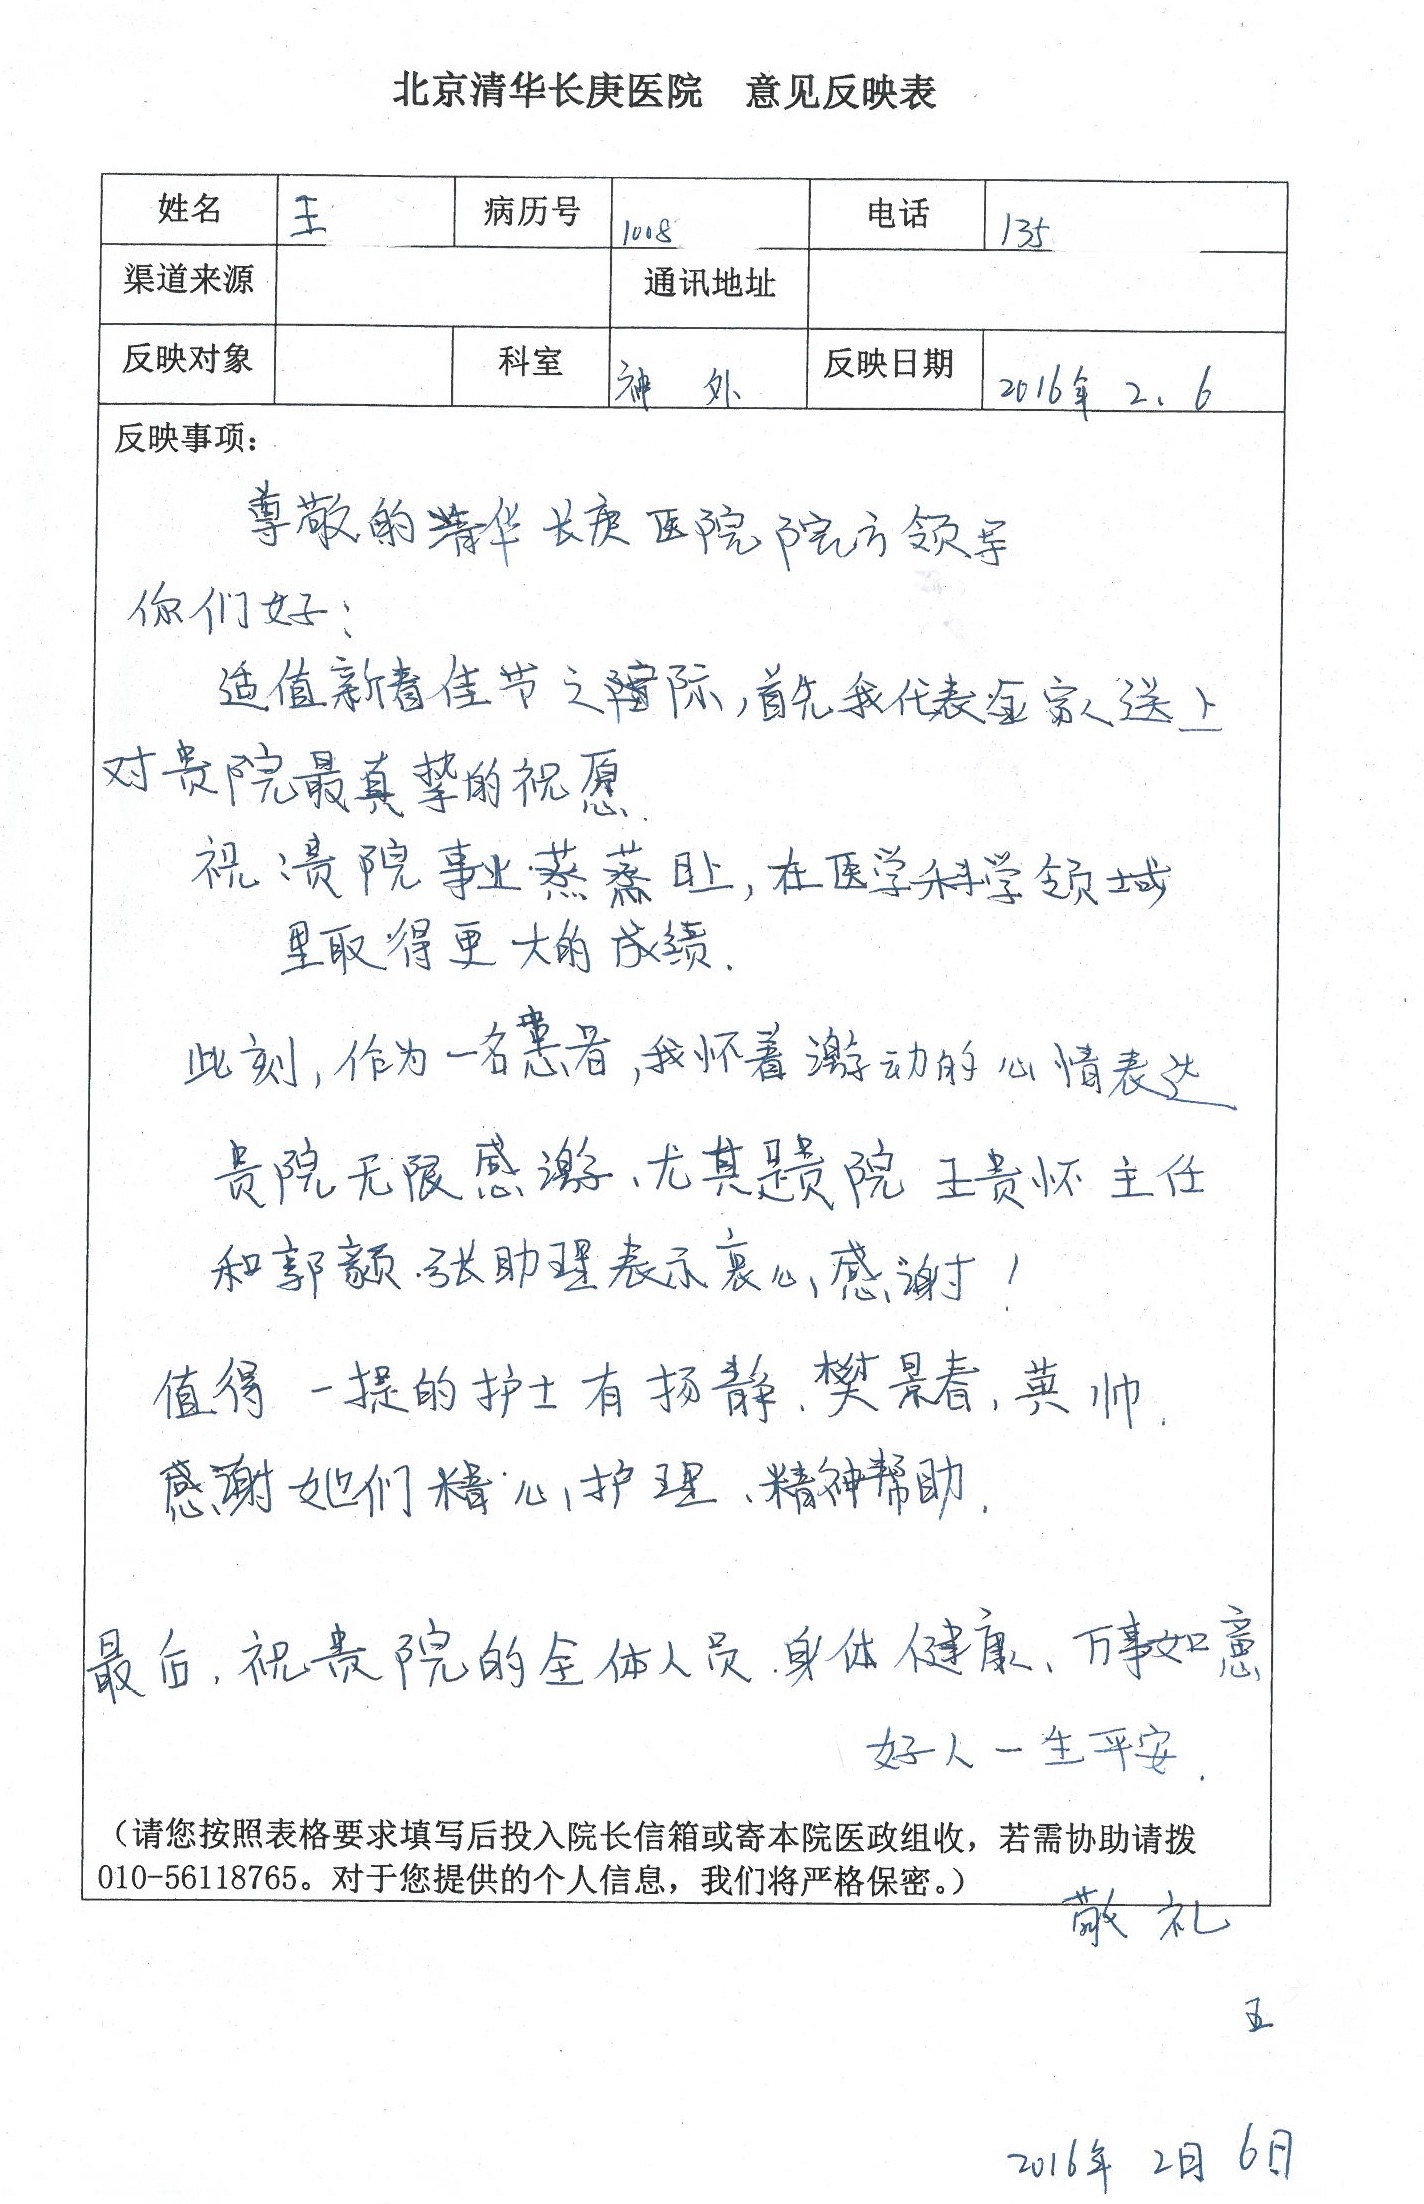 北京清华长庚医院 意见反映表
姓名 王 病历号 1008 电话 135
渠道来源 通讯地址
反映对象 科室 神外 反映日期 2016年2.6
反映事项：
尊敬的清华长庚医院院方领导
你们好：
适值新春佳节之际，首先我代表全家人送上
对贵院最真挚的祝愿.
祝：贵院事业蒸蒸日上，在医学科学领域
里取得更大的成绩.
此刻，作为一名患者，我怀着激动的心情表达
贵院无限感激、尤其是贵院王贵怀主任
和郭颖.张助理表示衷心感谢！
值得一提的护士有扬静.樊景春，英帅.
感谢她们精心护理、精神帮助.
最后，祝贵院的全体人员.身体健康、万事如意
好人一生平安.
（请您按照表格要求填写后投入院长信箱或寄本院医政组收，若需协助请拨
010-56118765。对于您提供的个人信息，我们将严格保密。）
敬礼
王
2016年2月6日